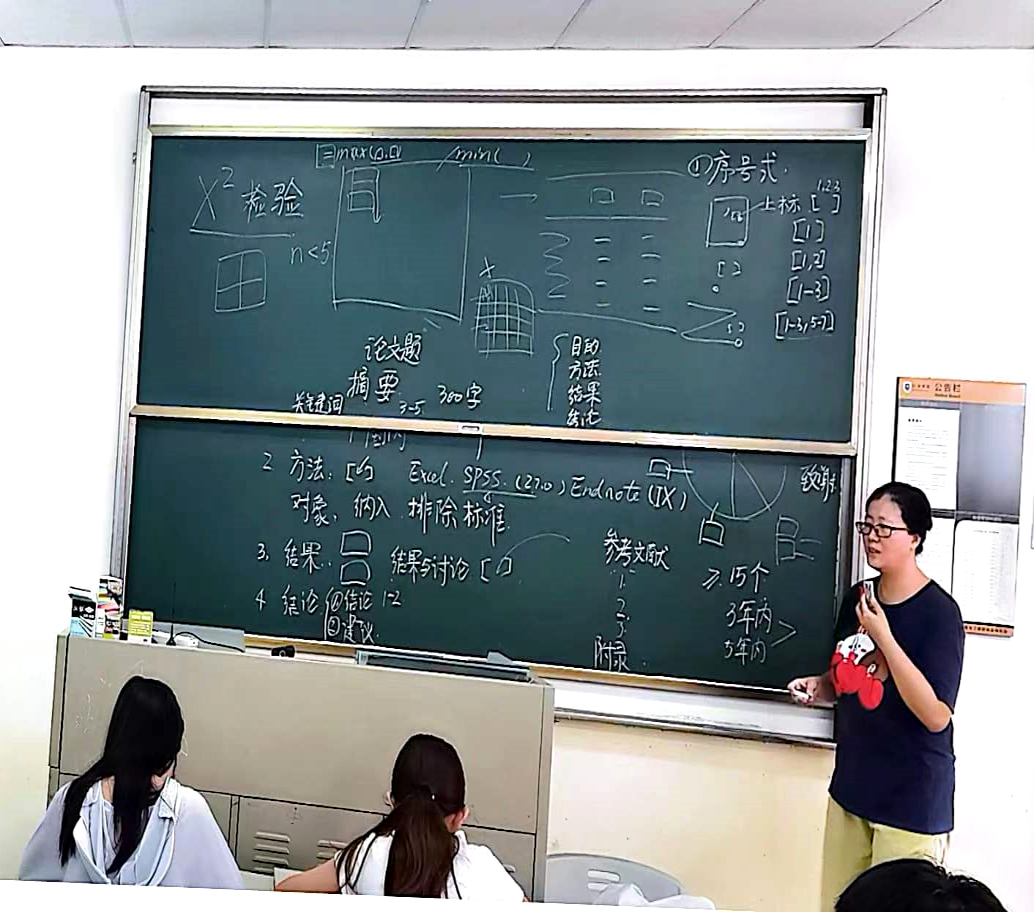 X² 检验
n<5
min( )
①序号式.
上标 [ ]
1,2,3
[1]
[1,2]
[1-3]
[1-3,5-7]
论文题
摘要
300字
关键词
3-5
目的
方法
结果
结论
2 方法:
Excel. SPSS. (27.0) Endnote (IX)
对象, 纳入 排除标准.
3. 结果.
结果与讨论
4 结论 ①结论 1-2
②建议.
参考文献
1
2
3
附录.
致谢
≥ 15个
3年内
5年内
公告栏